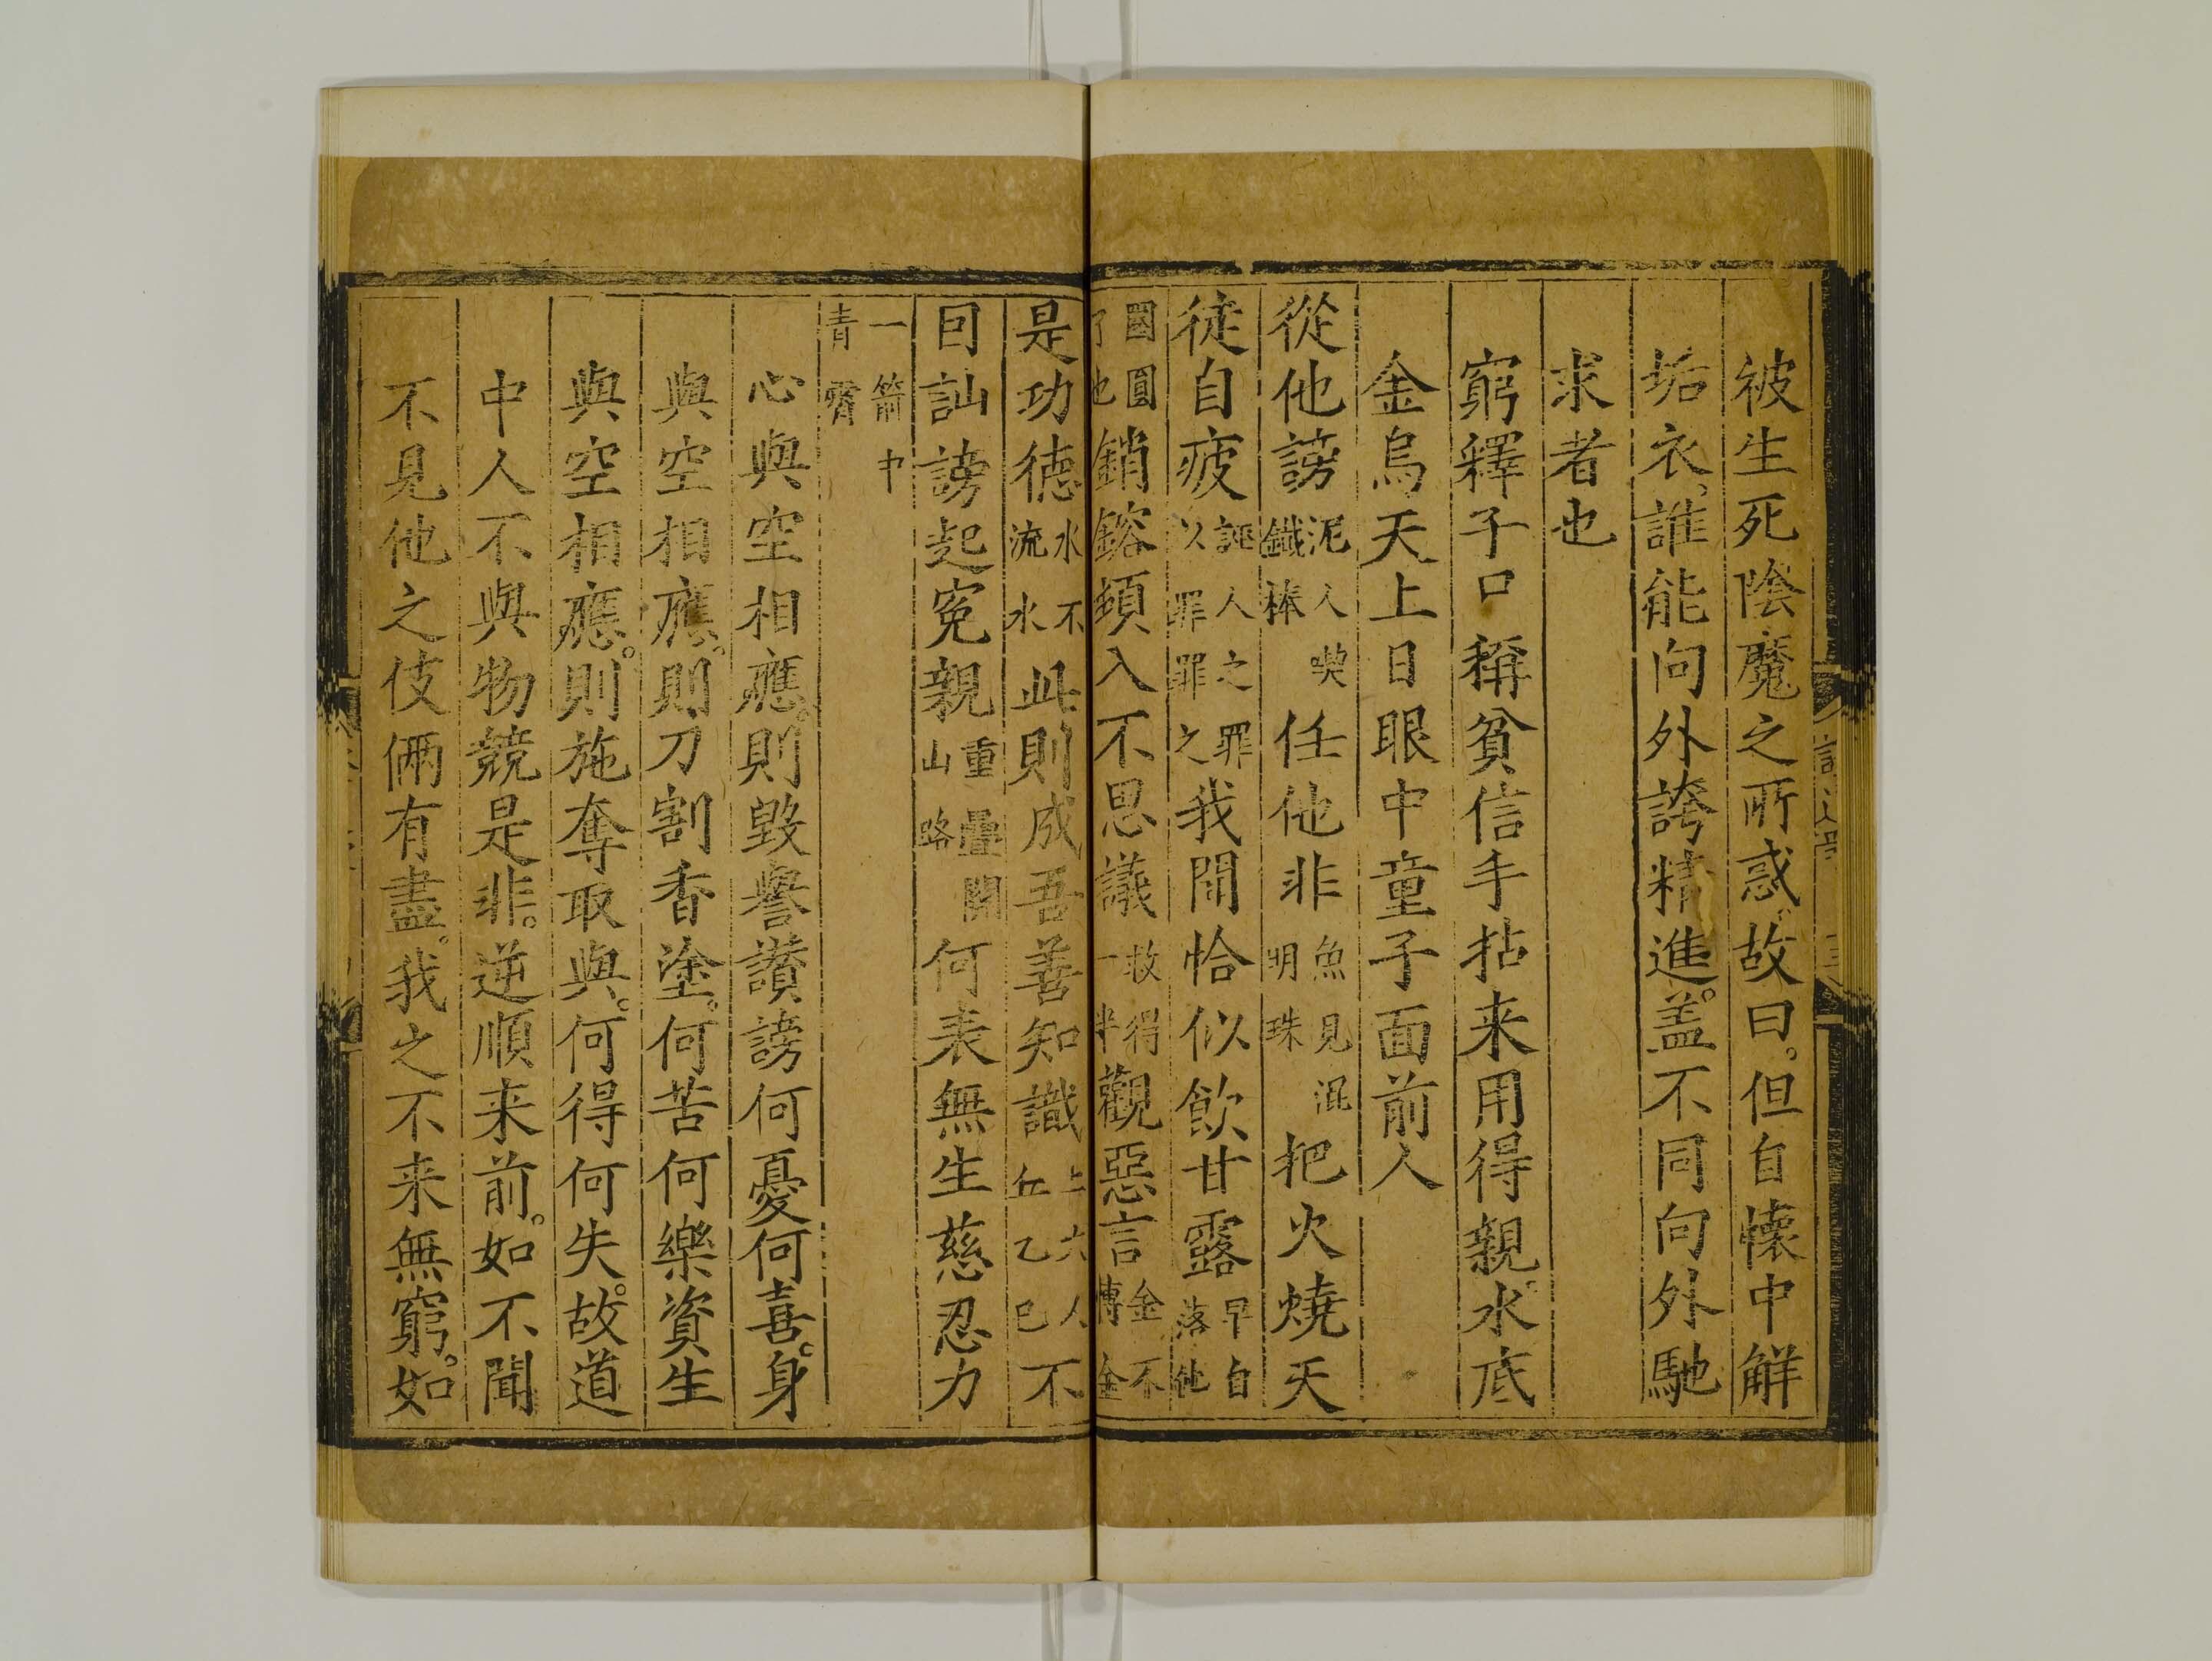 被生死陰魔之所惑故曰。但自懷中解
垢衣。誰能向外誇精進。盖不同向外馳
求者也
窮釋子口稱貧信手拈来用得親。水底
金烏天上日眼中童子面前人
從他謗泥人喫鐵棒任他非魚見混明珠把火燒天
徒自疲誣人之罪以罪罪之我聞恰似飲甘露早自落他
圝圓了也銷鎔頓入不思議救得一半觀惡言金不博金
是功德水不流水此則成吾善知識丘乙巳不
因訕謗起冤親重疊關山路何表無生慈忍力
一箭中青霄
心與空相應。則毀譽讚謗何憂何喜。身
與空相應。則刀割香塗。何苦何樂資生
與空相應。則施奪取與。何得何失。故道
中人不與物競是非。逆順来前。如不聞
不見他之伎倆有盡。我之不来無窮。如